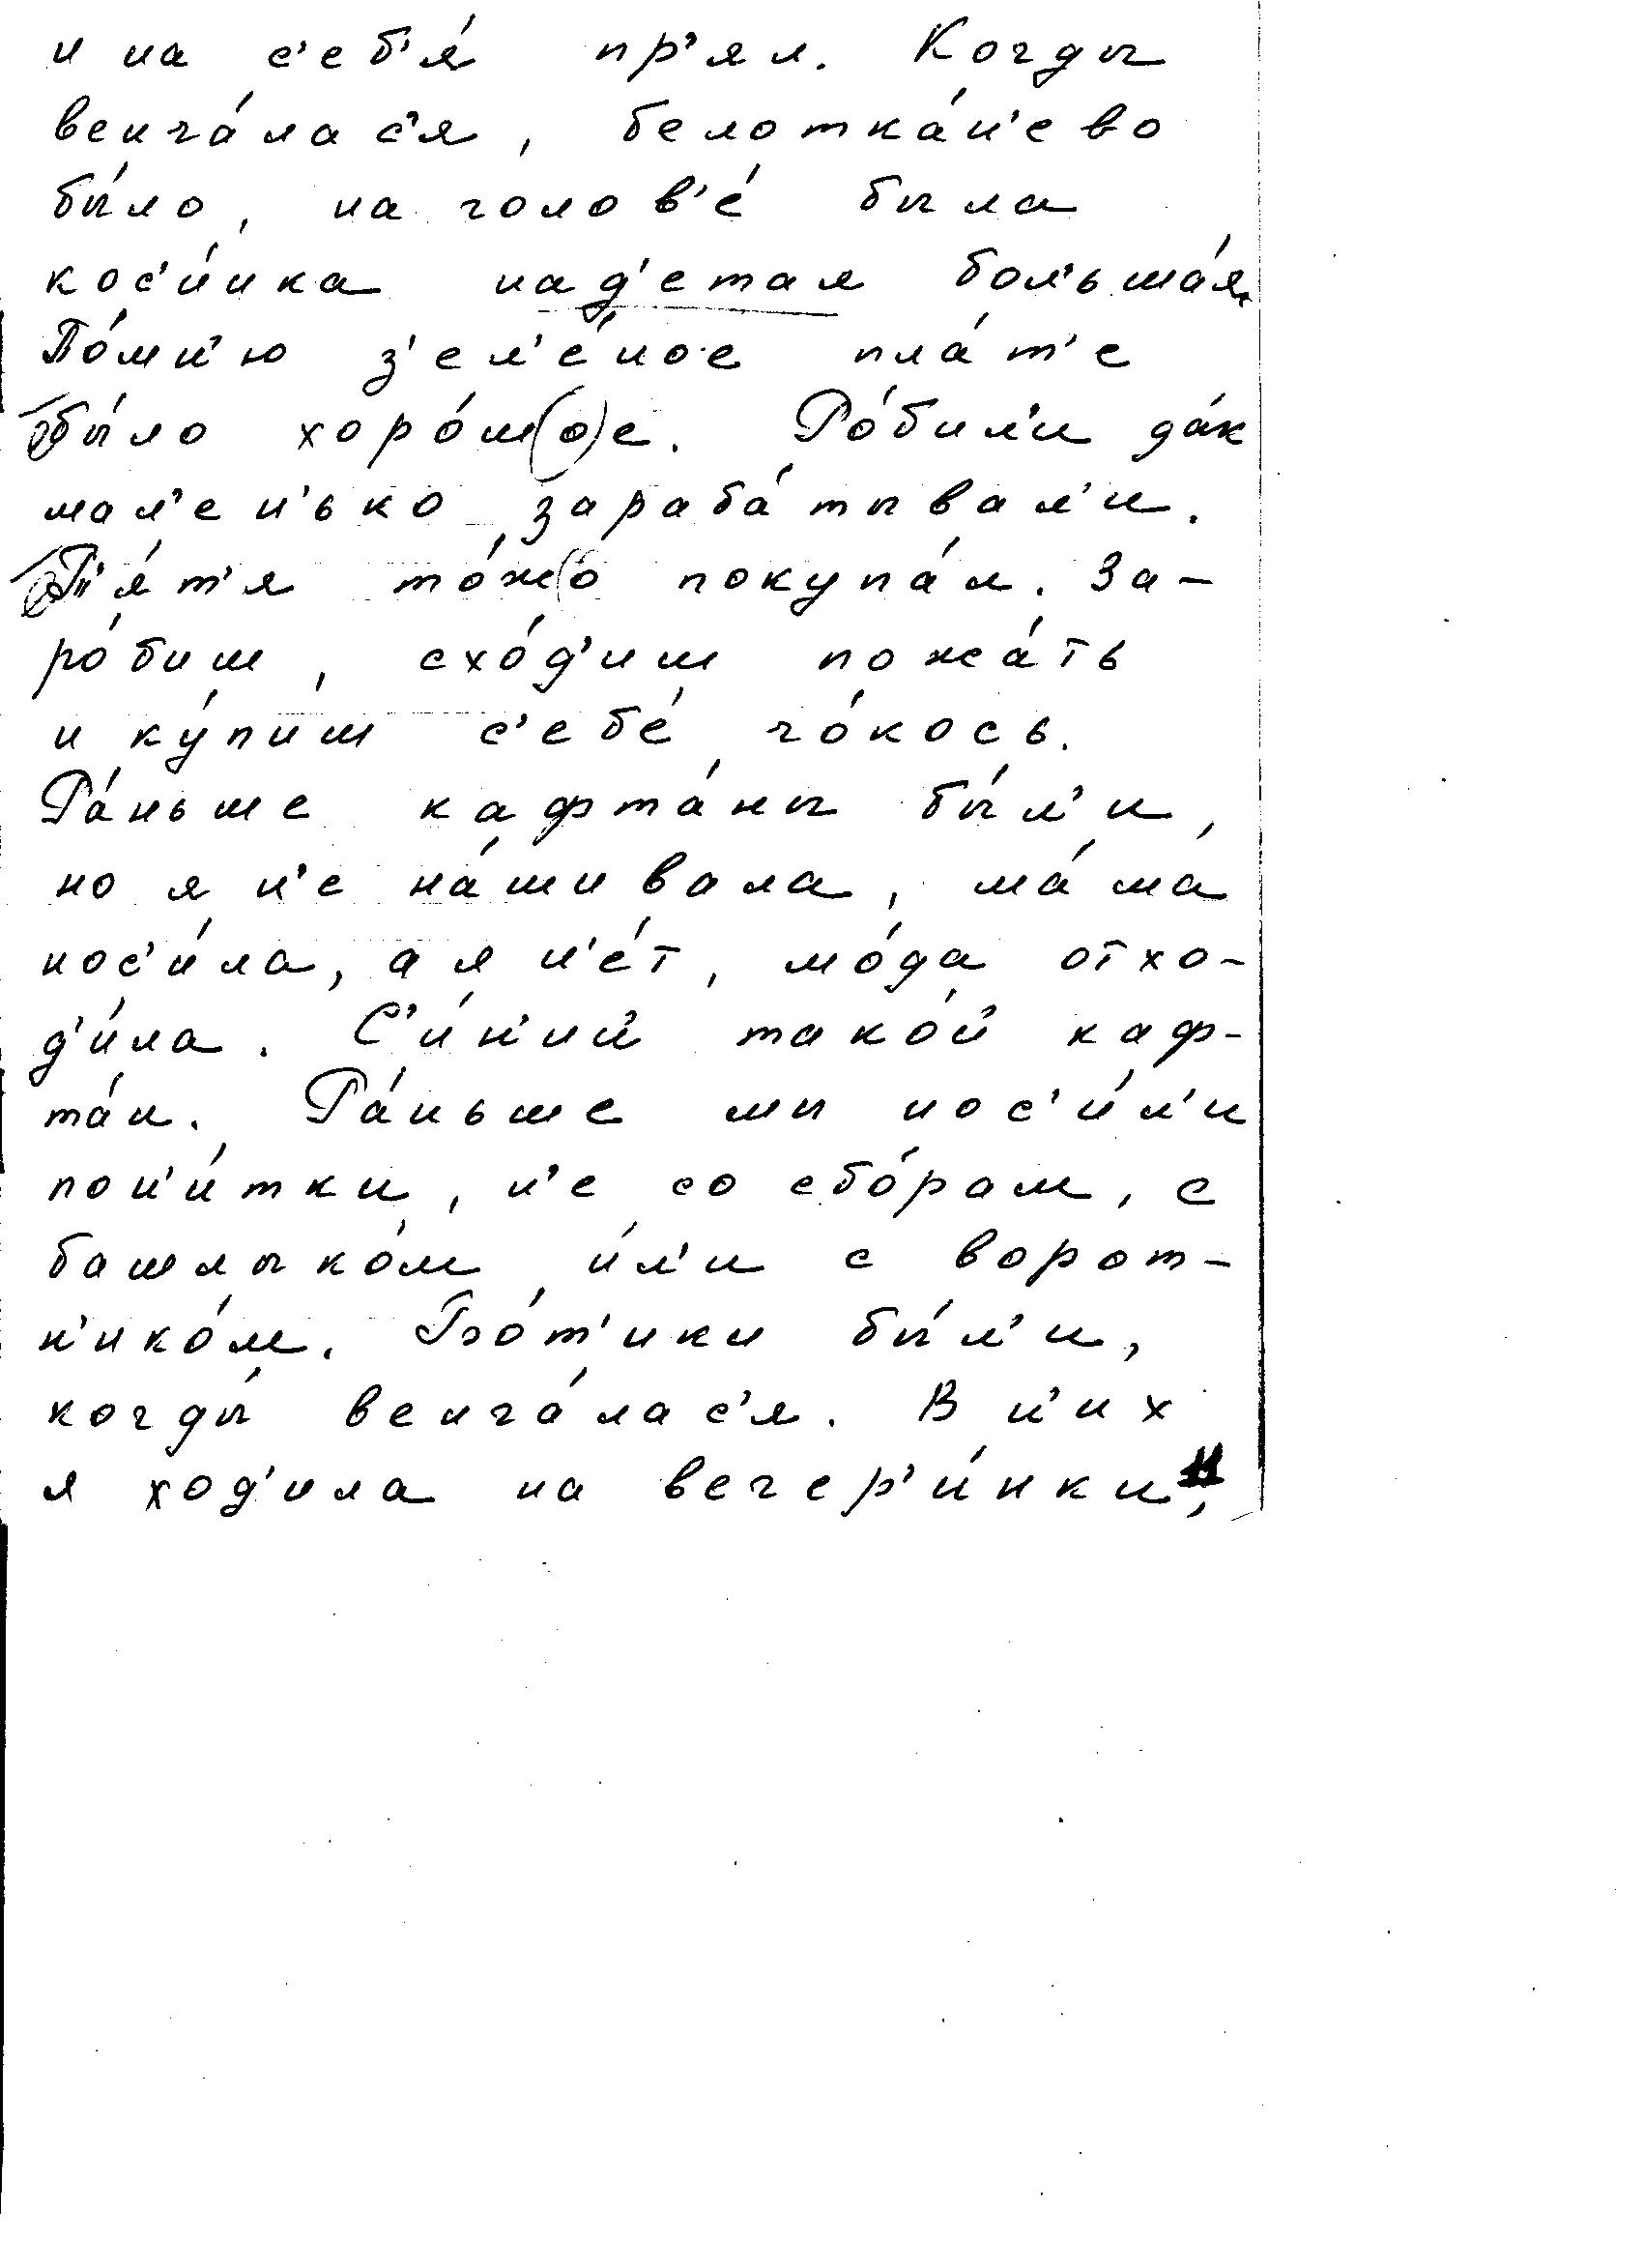 и на с'еб'я́ пр'ял. Когды
венча́лас'я, белотка́н'ево
бы́ло, на голов'е́ была
кос'и́нка над'етая бол'ьша́я.
По́мн'ю з'ел'е́ное пла́т'е
бы́ло хоро́ш(о)е. Ро́бил'и да́к
мал'ен'ько зараба́тывал'и.
Т'я́т'я то́ж(о покупа́л. За-
ро́биш, схо́д'иш пожа́ть
и ку́пиш с'ебе́ чо́кось.
Ра́ньше кафта́ны бы́л'и,
но я н'е на́шивала, ма́ма
нос'и́ла, а я н'е́т, мо́да отхо-
д'и́ла. С'и́н'ий тако́й каф-
та́н. Ра́ньше мы нос'и́л'и
пон'и́тки, н'е со сбо́рам, с
башлыко́м и́л'и с ворот-
н'ико́м. Бо́т'ики бы́л'и,
когды́ венча́лас'я. В н'их
я ход'ила на вечер'и́нки",